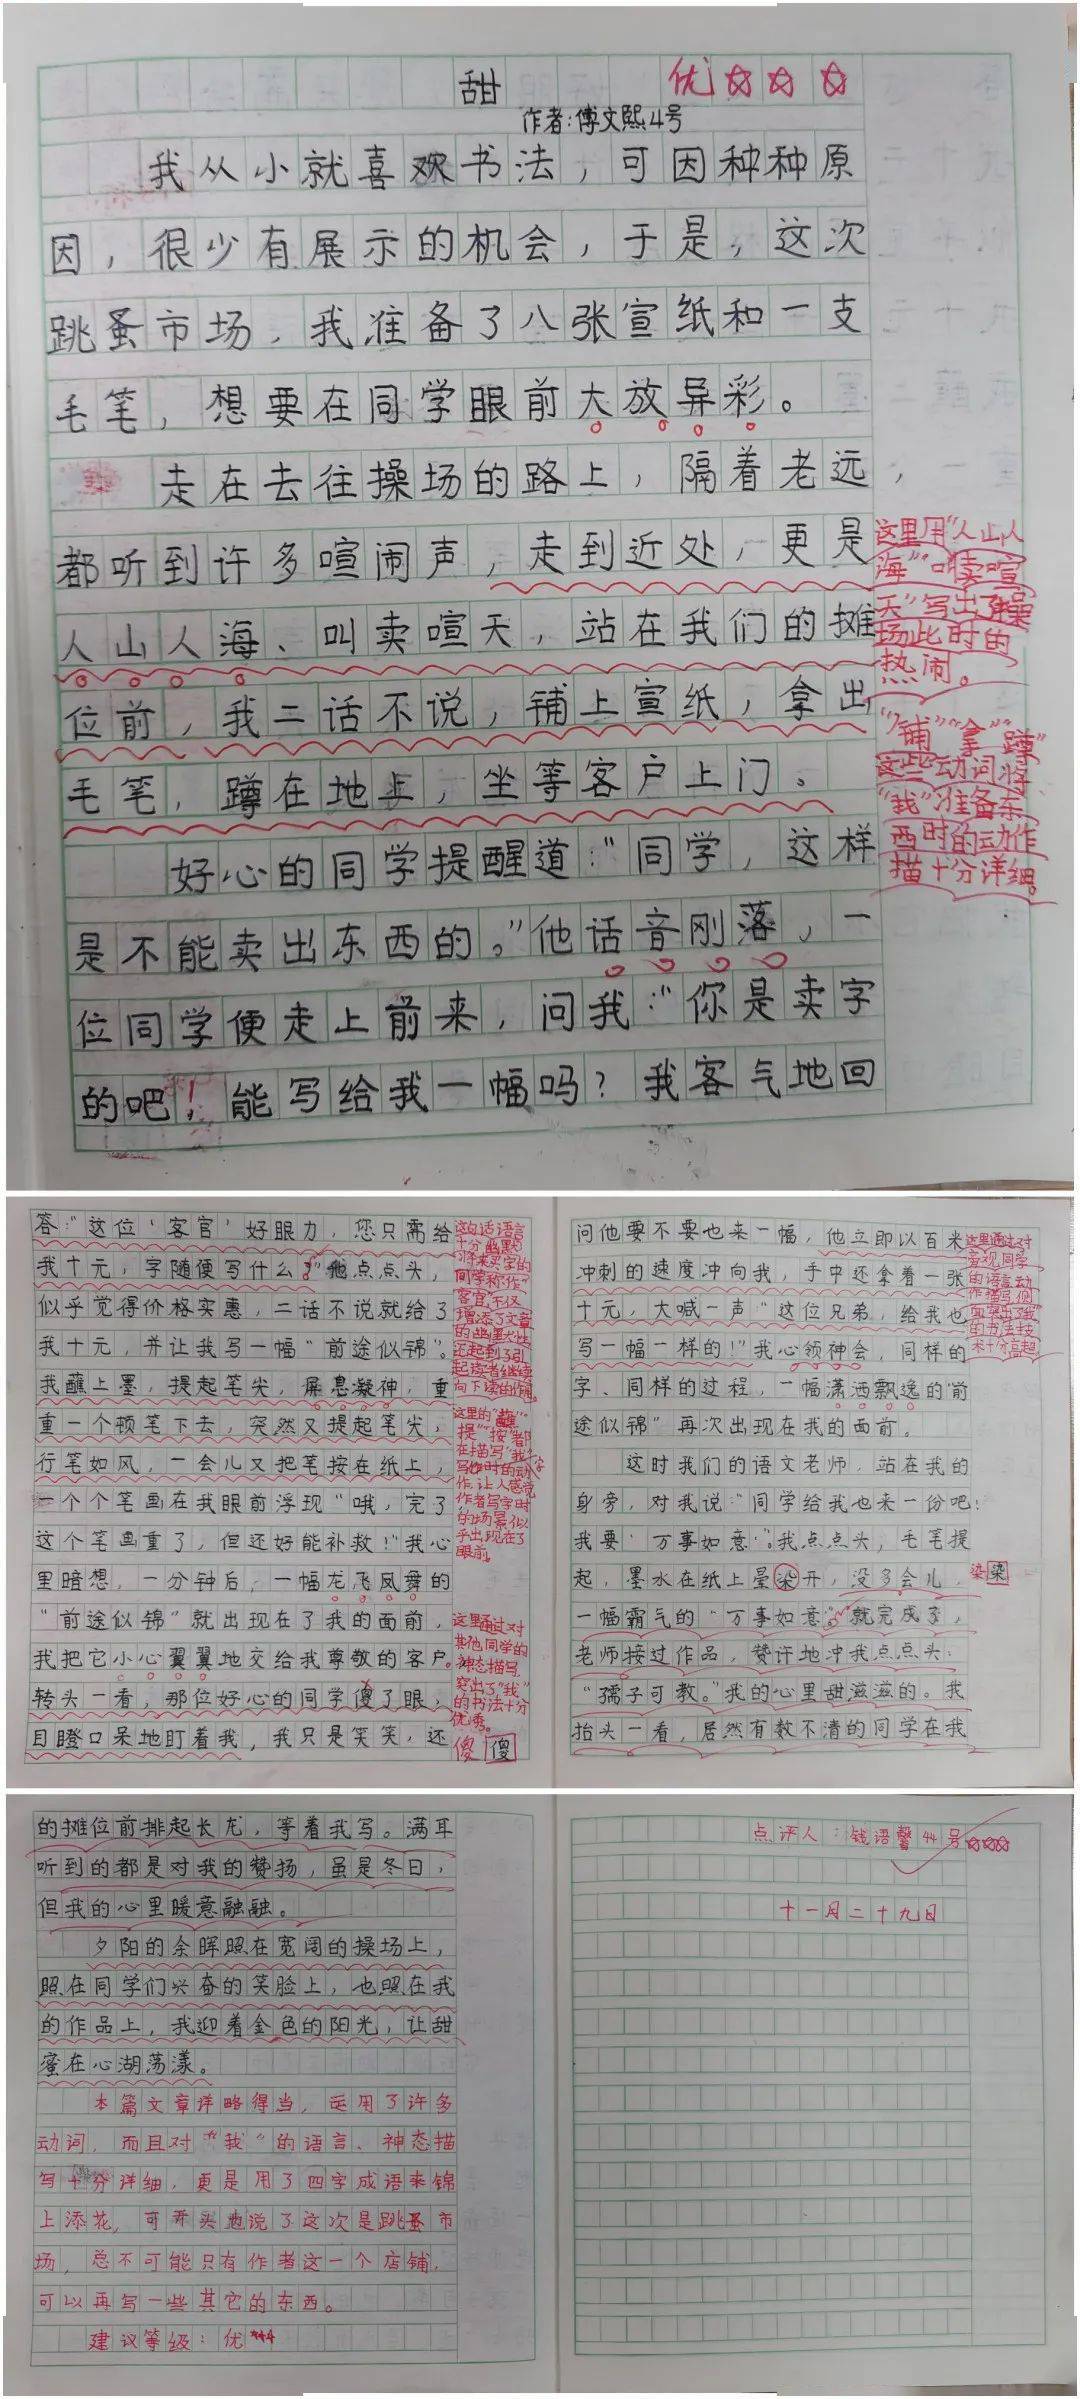 甜 优☆☆☆
作者:傅文熙4号
我从小就喜欢书法，可因种种原
因，很少有展示的机会，于是，这次
跳蚤市场，我准备了八张宣纸和一支
毛笔，想要在同学眼前大放异彩。
走在去往操场的路上，隔着老远，
都听到许多喧闹声，走到近处，更是
人山人海、叫卖喧天，站在我们的摊
位前，我二话不说，铺上宣纸，拿出
毛笔，蹲在地上，坐等客户上门。
好心的同学提醒道：“同学，这样
是不能卖出东西的。”他话音刚落，一
位同学便走上前来，问我：“你是卖字
的吧！能写给我一幅吗？我客气地回
这里用“人山人
海”“叫卖喧
天”写出了操
场此时的
热闹。
“铺”“拿”“蹲”
这些动词将
“我”准备东
西时的动作
描十分详细。
答：“这位‘客官’好眼力，您只需给
我十元，字随便写什么。”他点点头，
似乎觉得价格实惠，二话不说就给了
我十元，并让我写一幅“前途似锦”。
我蘸上墨，提起笔尖，屏息凝神，重
重一个顿笔下去，突然又提起笔尖，
行笔如风，一会儿又把笔按在纸上，
一个个笔画在我眼前浮现“哦，完了
这个笔画重了，但还好能补救！”我心
里暗想，一分钟后，一幅龙飞凤舞的
“前途似锦”就出现在了我的面前，
我把它小心翼翼地交给我尊敬的客户。
转头一看，那位好心的同学傻了眼，
目瞪口呆地盯着我，我只是笑笑，还
这句话语言
十分幽默，
将来买字的
同学称作“
客官”不仅
增添了文章
的幽默性
还起到了引
起读者继续
向下读的作用。
这里的“蘸”“
提”“按”都
在描写“我”写字
时的动
作，让人感觉
作者写字时
的场景似
乎出现在了
眼前。
这里通过对
其他同学的
神态描写，
突出了“我”
的书法十分
优秀。
傻 傻
问他要不要也来一幅，他立即以百米
冲刺的速度冲向我，手中还拿着一张
十元，大喊一声：“这位兄弟，给我也
写一幅一样的！”我心领神会，同样的
字、同样的过程，一幅潇洒飘逸的“前
途似锦”再次出现在我的面前。
这时我们的语文老师，站在我的
身旁，对我说：“同学给我也来一份吧！
我要‘万事如意’。”我点点头，毛笔提
起，墨水在纸上晕染开，没多会儿，
一幅霸气的“万事如意”就完成了，
老师接过作品，赞许地冲我点点头：
“孺子可教。”我的心里甜滋滋的。我
抬头一看，居然有数不清的同学在我
这里通过对
旁观同学
的语言、动
作描写，侧
面突出了“我”
的书法技
术十分高超
染 染
的摊位前排起长龙，等着我写。满耳
听到的都是对我的赞扬，虽是冬日，
但我的心里暖意融融。
夕阳的余晖照在宽阔的操场上，
照在同学们兴奋的笑脸上，也照在我
的作品上，我迎着金色的阳光，让甜
蜜在心湖荡漾。
本篇文章详略得当，运用了许多
动词，而且对“我”的语言、神态描
写十分详细，更是用了四字成语来锦
上添花，可开头也说了这次是跳蚤市
场，总不可能只有作者这一个店铺，
可以再写一些其它的东西。
建议等级：优
点评人：钱语馨44号☆☆☆
十一月二十九日